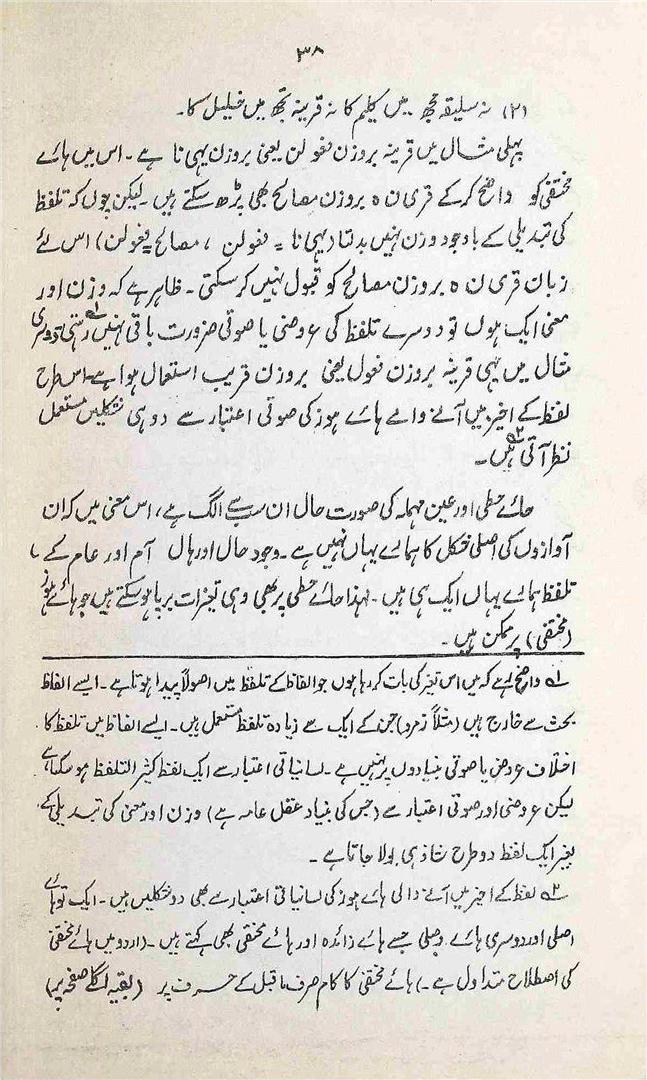 ۳۸
(۲) نہ سلیقہ مجھ میں کلیم کا نہ قرینہ تجھ میں خلیل کا۔
پہلی مثال میں قرینہ بروزن فعولن یعنی بروزن یہی نا ہے۔ اس میں ہائے
مختفی کو واضح کرکے قری ن ہ بروزن مصالح بھی پڑھ سکتے ہیں۔ لیکن چوں کہ تلفظ
کی تبدیلی کے باوجود وزن نہیں بدلتا (یہی نا = فعولن ، مصالح = فعولن) اس لئے
زبان قری ن ہ بروزن مصالح کو قبول نہیں کرسکتی۔ ظاہر ہے کہ وزن اور
معنی ایک ہوں تو دوسرے تلفظ کی عروضی یا صوتی ضرورت باقی نہیں رہتی۱؎ دوسری
مثال میں یہی قرینہ بروزن فعول یعنی بروزن قریب استعمال ہوا ہے۔ اس طرح
لفظ کے اخیر میں آنے والے ہائے ہوز کی صوتی اعتبار سے دو ہی شکلیں مستعمل
نظر آتی ہیں۲؎۔
حائے حطی اور عین مہملہ کی صورت حال ان سب سے الگ ہے، اس معنی میں کہ ان
آوازوں کی اصلی شکل کا ہمارے یہاں نہیں ہے۔ وجود حال اور ہال آم اور عام کے
تلفظ ہمارے یہاں ایک ہی ہیں۔ لہٰذا حائے حطی پر بھی وہی تغیرات برپا ہوسکتے ہیں جو ہائے ہوز
(مختفی) پر ممکن ہیں۔
۱؎ واضح رہے کہ میں اس تغیر کی بات کر رہا ہوں جو الفاظ کے تلفظ میں اصولاً پیدا ہوتا ہے۔ ایسے الفاظ
بحث سے خارج ہیں (مثلاً زمرد) جن کے ایک سے زیادہ تلفظ مستعمل ہیں۔ ایسے الفاظ میں تلفظ کا
اختلاف عروض یا صوتی بنیادوں پر نہیں ہے۔ لسانیاتی اعتبار سے ایک لفظ کثیر التلفظ ہو سکتا ہے
لیکن عروضی اور صوتی اعتبار سے (جس کی بنیاد عقل عامہ ہے) وزن اور معنی کی تبدیلی کے
بغیر ایک لفظ دو طرح شاذ ہی بولا جاتا ہے۔
۲؎ لفظ کے اخیر میں آنے والی ہائے ہوز کی لسانیاتی اعتبار سے بھی دو شکلیں ہیں۔ ایک تو ہائے
اصلی اور دوسری ہائے وصلی جسے ہائے زائدہ اور ہائے مختفی بھی کہتے ہیں۔ (اردو میں ہائے مختفی
کی اصطلاح متداول ہے۔) ہائے مختفی کا کام صرف ماقبل کے حرف پر (بقیہ اگلے صفحہ پر)